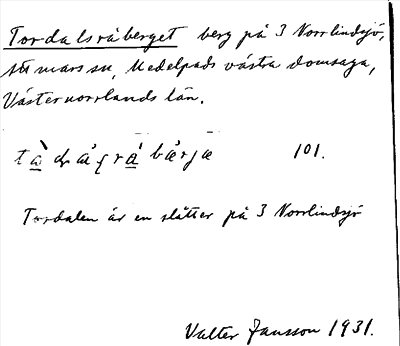 Tordalsråberget berg på 3 Norrlindsjö,
Attmars sn, Medelpads västra domsaga,
Västernorrlands län.
101.
Tordalen är en slåtter på 3 Norrlindsjö
Valter Jansson 1931.